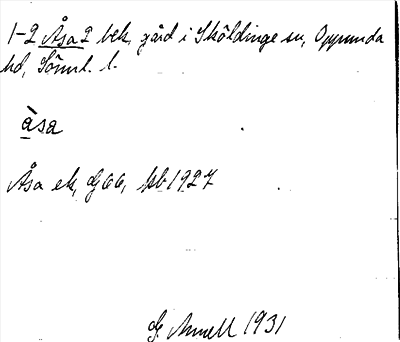 1-2 Åsa 2 bek. gård i Sköldinge sn, Oppunda
hd, Sörml. l.
åsa
Åsa ek, G66, kb 1927
G. Annell 1931